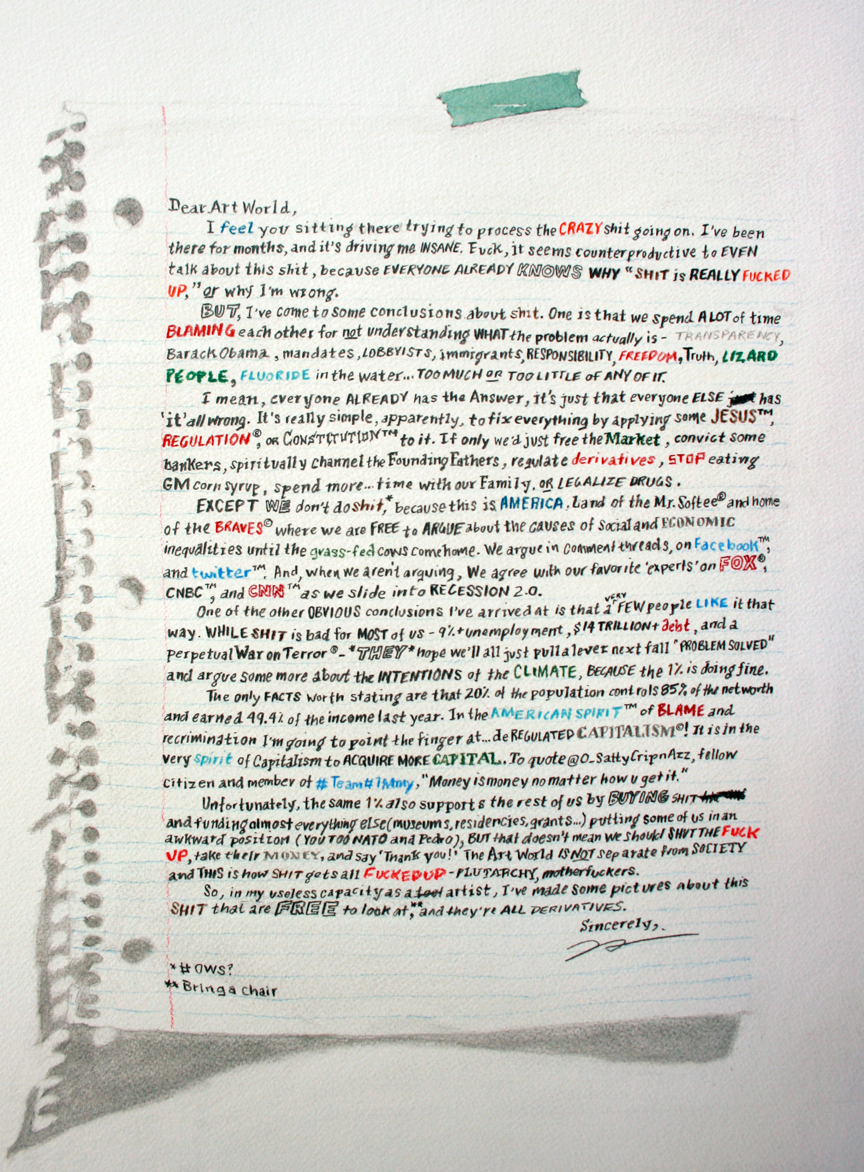 Dear Art World,
I feel you sitting there trying to process the CRAZY shit going on. I've been
there for months, and it's driving me INSANE. Fuck, it seems counterproductive to EVEN
talk about this shit, because EVERYONE ALREADY KNOWS WHY "SHIT is REALLY FUCKED
UP," or why I'm wrong.
BUT, I've come to some conclusions about shit. One is that we spend A LOT of time
BLAMING each other for not understanding WHAT the problem actually is - TRANSPARENCY,
Barack Obama, mandates, LOBBYISTS, immigrants, RESPONSIBILITY, FREEDOM, Truth, LIZARD
PEOPLE, FLUORIDE in the water... TOO MUCH OR TOO LITTLE OF ANY OF IT.
I mean, everyone ALREADY has the Answer, it's just that everyone ELSE has
'it' all wrong. It's really simple, apparently, to fix everything by applying some JESUS™,
REGULATION®, OR CONSTITUTION™ to it. If only we'd just free the Market, convict some
bankers, spiritually channel the Founding Fathers, regulate derivatives, STOP eating
GM corn syrup, spend more... time with our Family, OR LEGALIZE DRUGS.
EXCEPT WE don't do shit,* because this is AMERICA. Land of the Mr. Softee® and home
of the BRAVES® where we are FREE to ARGUE about the causes of Social and ECONOMIC
inequalities until the grass-fed cows come home. We argue in comment threads, on Facebook™,
and twitter™. And, when we aren't arguing, We agree with our favorite 'experts' on FOX®,
CNBC™, and CNN™ as we slide into RECESSION 2.0.
One of the other OBVIOUS conclusions I've arrived at is that a VERY FEW people LIKE it that
way. WHILE SHIT is bad for MOST of us - 9%+ unemployment, $14 TRILLION+ debt, and a
perpetual War on Terror® - *THEY* hope we'll all just pull a lever next fall "PROBLEM SOLVED"
and argue some more about the INTENTIONS of the CLIMATE, BECAUSE the 1% is doing fine.
The only FACTS worth stating are that 20% of the population controls 85% of the net worth
and earned 49.4% of the income last year. In the AMERICAN SPIRIT™ of BLAME and
recrimination I'm going to point the finger at... deREGULATED CAPITALISM©! It is in the
very spirit of Capitalism to ACQUIRE MORE CAPITAL. To quote @O_SattyCripnAzz, fellow
citizen and member of #Team#1Mny, "Money is money no matter how u get it."
Unfortunately, the same 1% also supports the rest of us by BUYING SHIT
and funding almost everything else (museums, residencies, grants...) putting some of us in an
awkward position (YOU TOO NATO and Pedro), BUT that doesn't mean we should SHUT THE FUCK
UP, take their MONEY, and say 'Thank you!' The Art World IS NOT separate from SOCIETY
and THIS is how SHIT gets all FUCKED UP - PLUTARCHY, motherfuckers.
So, in my useless capacity as a fool artist, I've made some pictures about this
SHIT that are FREE to look at,** and they're ALL DERIVATIVES.
Sincerely,
*#OWS?
**Bring a chair